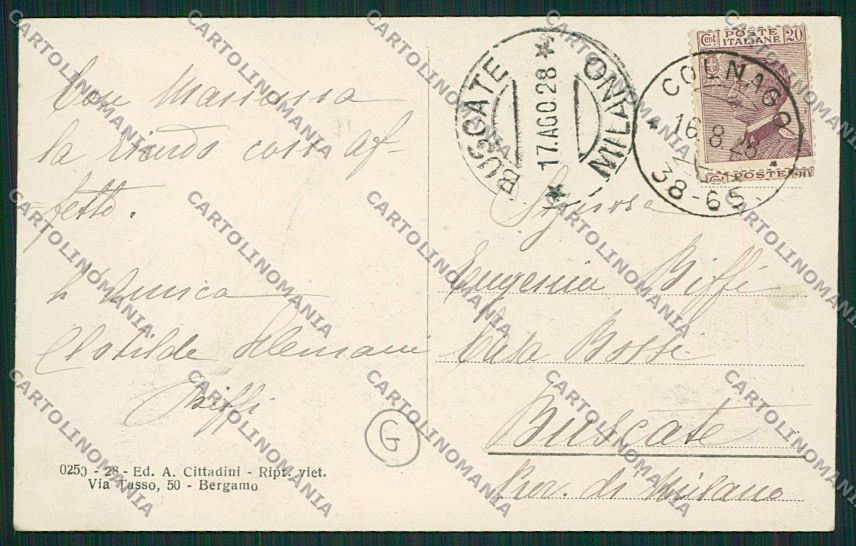 Con Marianna
la ricordo con af-
fetto.
L'Amica
Clotilde Alemani
Biffi
G
0250 - 28 - Ed. A. Cittadini - Ripr. viet.
Via Tasso, 50 - Bergamo
BUSCATE
17.AGO.28
MILANO
Cent POSTE ITALIANE 20
COLNAGO
16.8.28
38-65
POSTE
Signora
Eugenia Biffi
Casa Bossi
Buscate
Prov. di Milano
CARTOLINOMANIA